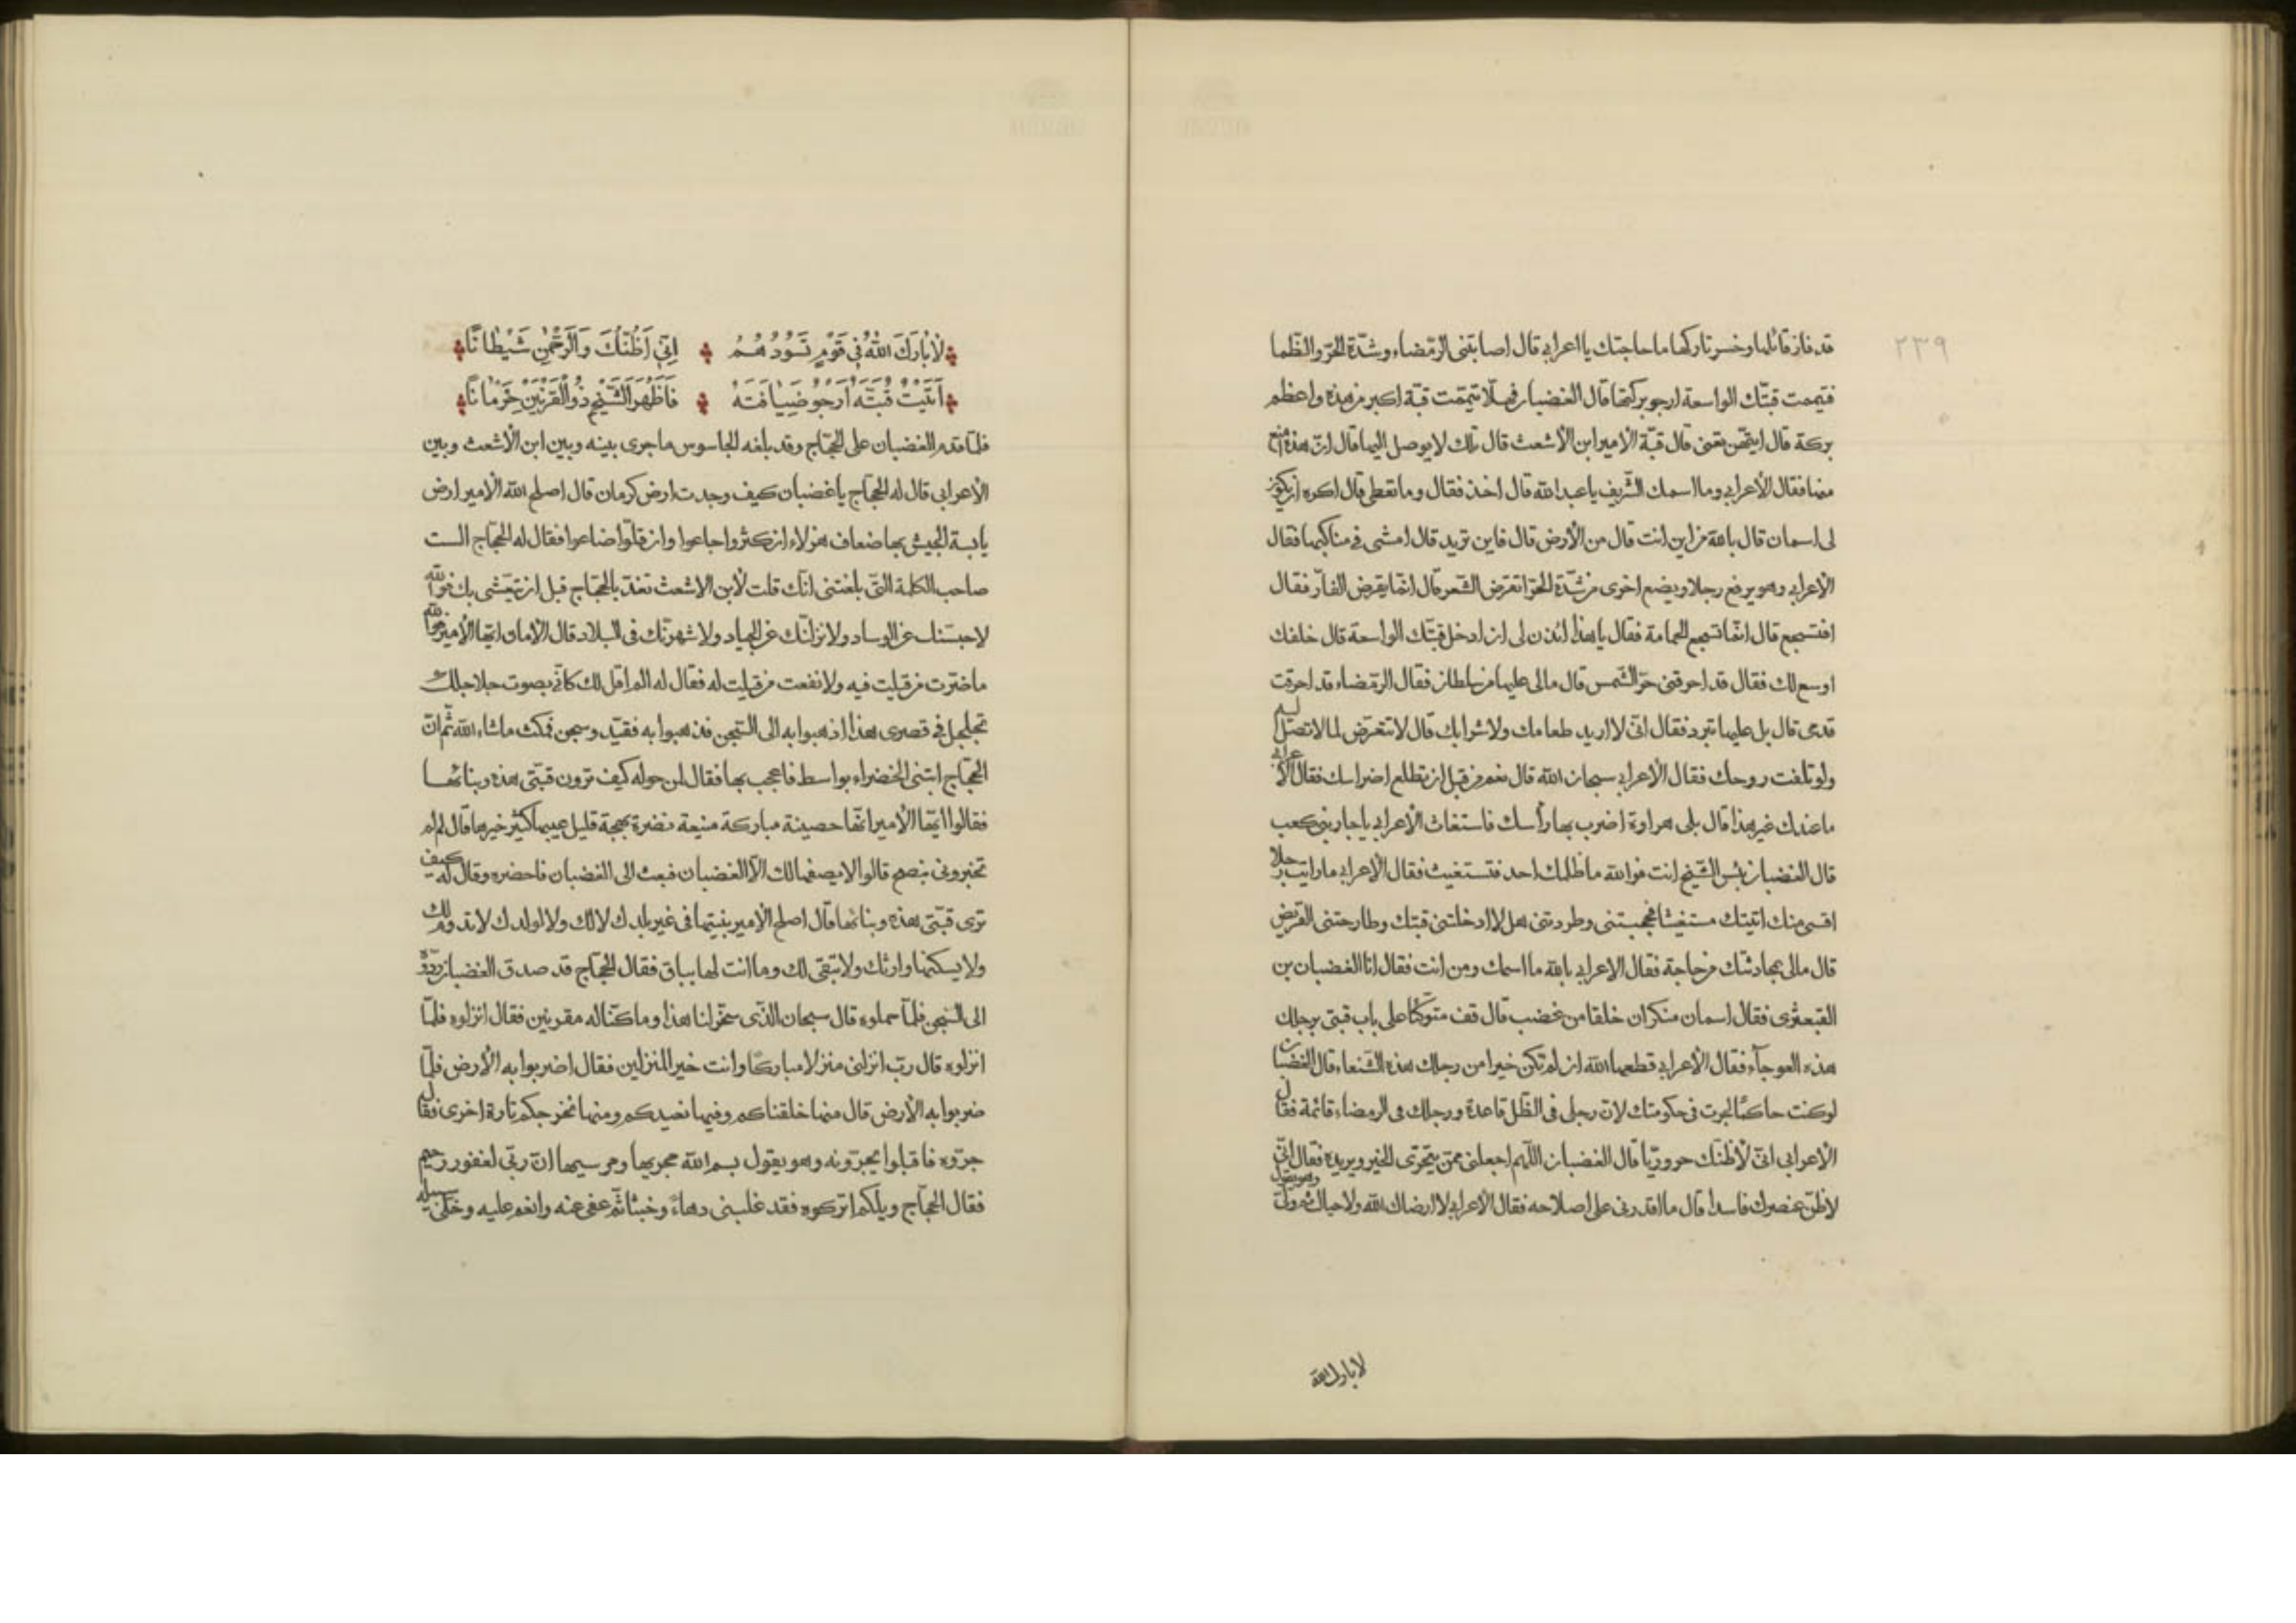 ٢٣٩
قد فاز قائلها وخسر تاركها ما حاجتك يا اعرابي قال اصابتنى الرمضاء وشدّة الحرّ والظما
فتيممت قبتّك الواسعة ارجو بركتها قال الغضبان فهلّا تيممّت قبّة اكبر من هذه واعظم
بركة قال ايتّهن تعنى قال قبّة الامير ابن الأشعث قال تلك لا يوصل اليها قال انّ هذه امنع
منها فقال الأعرابي وما اسمك الشّريف يا عبد الله قال اخذ فقال وما تعطى قال اكره ان يكون
لى اسمان قال بالله من اين انت قال من الأرض قال فاين تريد قال امشى في مناكبها فقال
الأعرابي وهو يرفع رجلا ويضع اخرى من شدّة الحرّ اتقرض الشّعر قال انمّا يقرض الفار فقال
افتسجع قال انمّا تسجع الحمامة فقال يا هذا ائذن لى ان ادخل قبّتك الواسعة قال خلفك
اوسع لك فقال قد احرقنى حرّ الشّمس قال مالى عليها من سلطان فقال الرمّضاء قد احرقت
قدمى قال بل عليها تبرد فقال انّى لا اريد طعامك ولا شرابك قال لا تتعرّض لما لا تصل اليه
ولو تلفت روحك فقال الأعرابي سبحان الله قال نعم من قبل ان تطلع اضراسك فقال الأعرابي
ما عندك غير هذا قال بلى هراوة اضرب بها رأسك فاستغاث الأعرابي يا جار بنى كعب
قال الغضبان بئس الشّيخ انت فوالله ما ظلمك احد فتستغيث فقال الأعرابي ما رايت رجلا
اقسى منك اتيتك مستغيثا فحجبتنى وطردتنى هل لا ادخلتنى قبتك وطارحتنى القريض
قال مالى بمحادثتك من حاجة فقال الأعرابي بالله ما اسمك ومن انت فقال انا الغضبان بن
القبعثرى فقال اسمان منكران خلقا من غضب قال قف متوكّئا على باب قبتى برجلك
هذه العوجآء فقال الأعرابي قطعها الله ان لم تكن خيرا من رجلك هذه الشّنعاء قال الغضبان
لو كنت حاكمًا لجرت في حكومتك لان رجلى فى الظّل قاعدة ورجلك فى الرمضاء قائمة فقال
الأعرابي انّى لأظنّك حروريّا قال الغضبان اللّهم اجعلنى ممّن يتحرّى الخير ويريده فقال انّى
لأظنّ عنصرك فاسدا قال ما اقدرنى على اصلاحه فقال الأعرابي لا ارضاك الله ولا حياك ثم ولّى وهو يقول
لا بارك الله
لَا بَارَكَ اللهُ فِي قَوْمٍ تَسُودُهُمُ اِنِّي اَظُنُّكَ وَالرَّحْمٰنِ شَيْطَانًا
أَتَيْتُ قُبَّتَهُ اَرْجُو ضِيَافَتَهُ فَاَظْهَرَ الشَّيْخُ ذُو الْقَرْنَيْنِ حِرْمَانًا
فلمّا قدم الغضبان على الحجّاج وقد بلغه الجاسوس ما جرى بينه وبين ابن الأشعث وبين
الأعرابى قال له الحجّاج يا غضبان كيف وجدت ارض كرمان قال اصلح الله الأمير ارض
يابسة الجيش بها ضعاف هزلاء ان كثروا جاعوا وان قلّوا ضاعوا فقال له الحجّاج الست
صاحب الكلمة التّى بلغتنى انّك قلت لأبن الاشعث تغدّ بالحجّاج قبل ان يتعشّى بك فوالله
لاحبسنك عن الوساد ولانزلنّك عن الجياد ولاشهرنّك فى البلاد قال الأمان ايّها الأمير فوالله
ما ضرّت من قيلت فيه ولا نفعت من قيلت له فقال له الم اقل لك كانّى بصوت جلاجلك
تجلجل فى قصرى هذا اذهبوا به الى السّجن فذهبوا به فقيّد وسجن فمكث ماشاء الله ثمّ انّ
الحجّاج ابتنى الخضراء بواسط فاعجب بها فقال لمن حوله كيف ترون قبّتى هذه وبنائها
فقالوا ايّها الأمير انّها حصينة مباركة منيعة نضرة بهجة قليل عيبها كثير خيرها قال لم لم
تخبرونى بنصح قالوا لا يصفها لك الّا الغضبان فبعث الى الغضبان فاحضره وقال له كيف
ترى قبّتى هذه وبنائها قال اصلح الأمير بنيتها فى غير بلدك لا لك ولا لولدك لا تدوم لك
ولا يسكنها وارثك ولا تبقى لك وما انت لها بباق فقال الحجّاج قد صدق الغضبان ردّوه
الى السّجن فلمّا حملوه قال سبحان الذّى سخّر لنا هذا وما كنّا له مقرنين فقال انزلوه فلمّا
انزلوه قال ربّ انزلنى منزلا مباركًا وانت خير المنزلين فقال اضربوا به الأرض فلمّا
ضربوا به الأرض قال منها خلقناكم وفيها نعيدكم ومنها نخرجكم تارة اخرى فقال
جرّوه فاقبلوا يجرّونه وهو يقول بسم الله مجريها ومرسيها انّ ربّى لغفور رحيم
فقال الحجّاج ويلكم اتركوه فقد غلبنى دهاءً وخبثا ثم عفى عنه وانعم عليه وخلّى سبيله